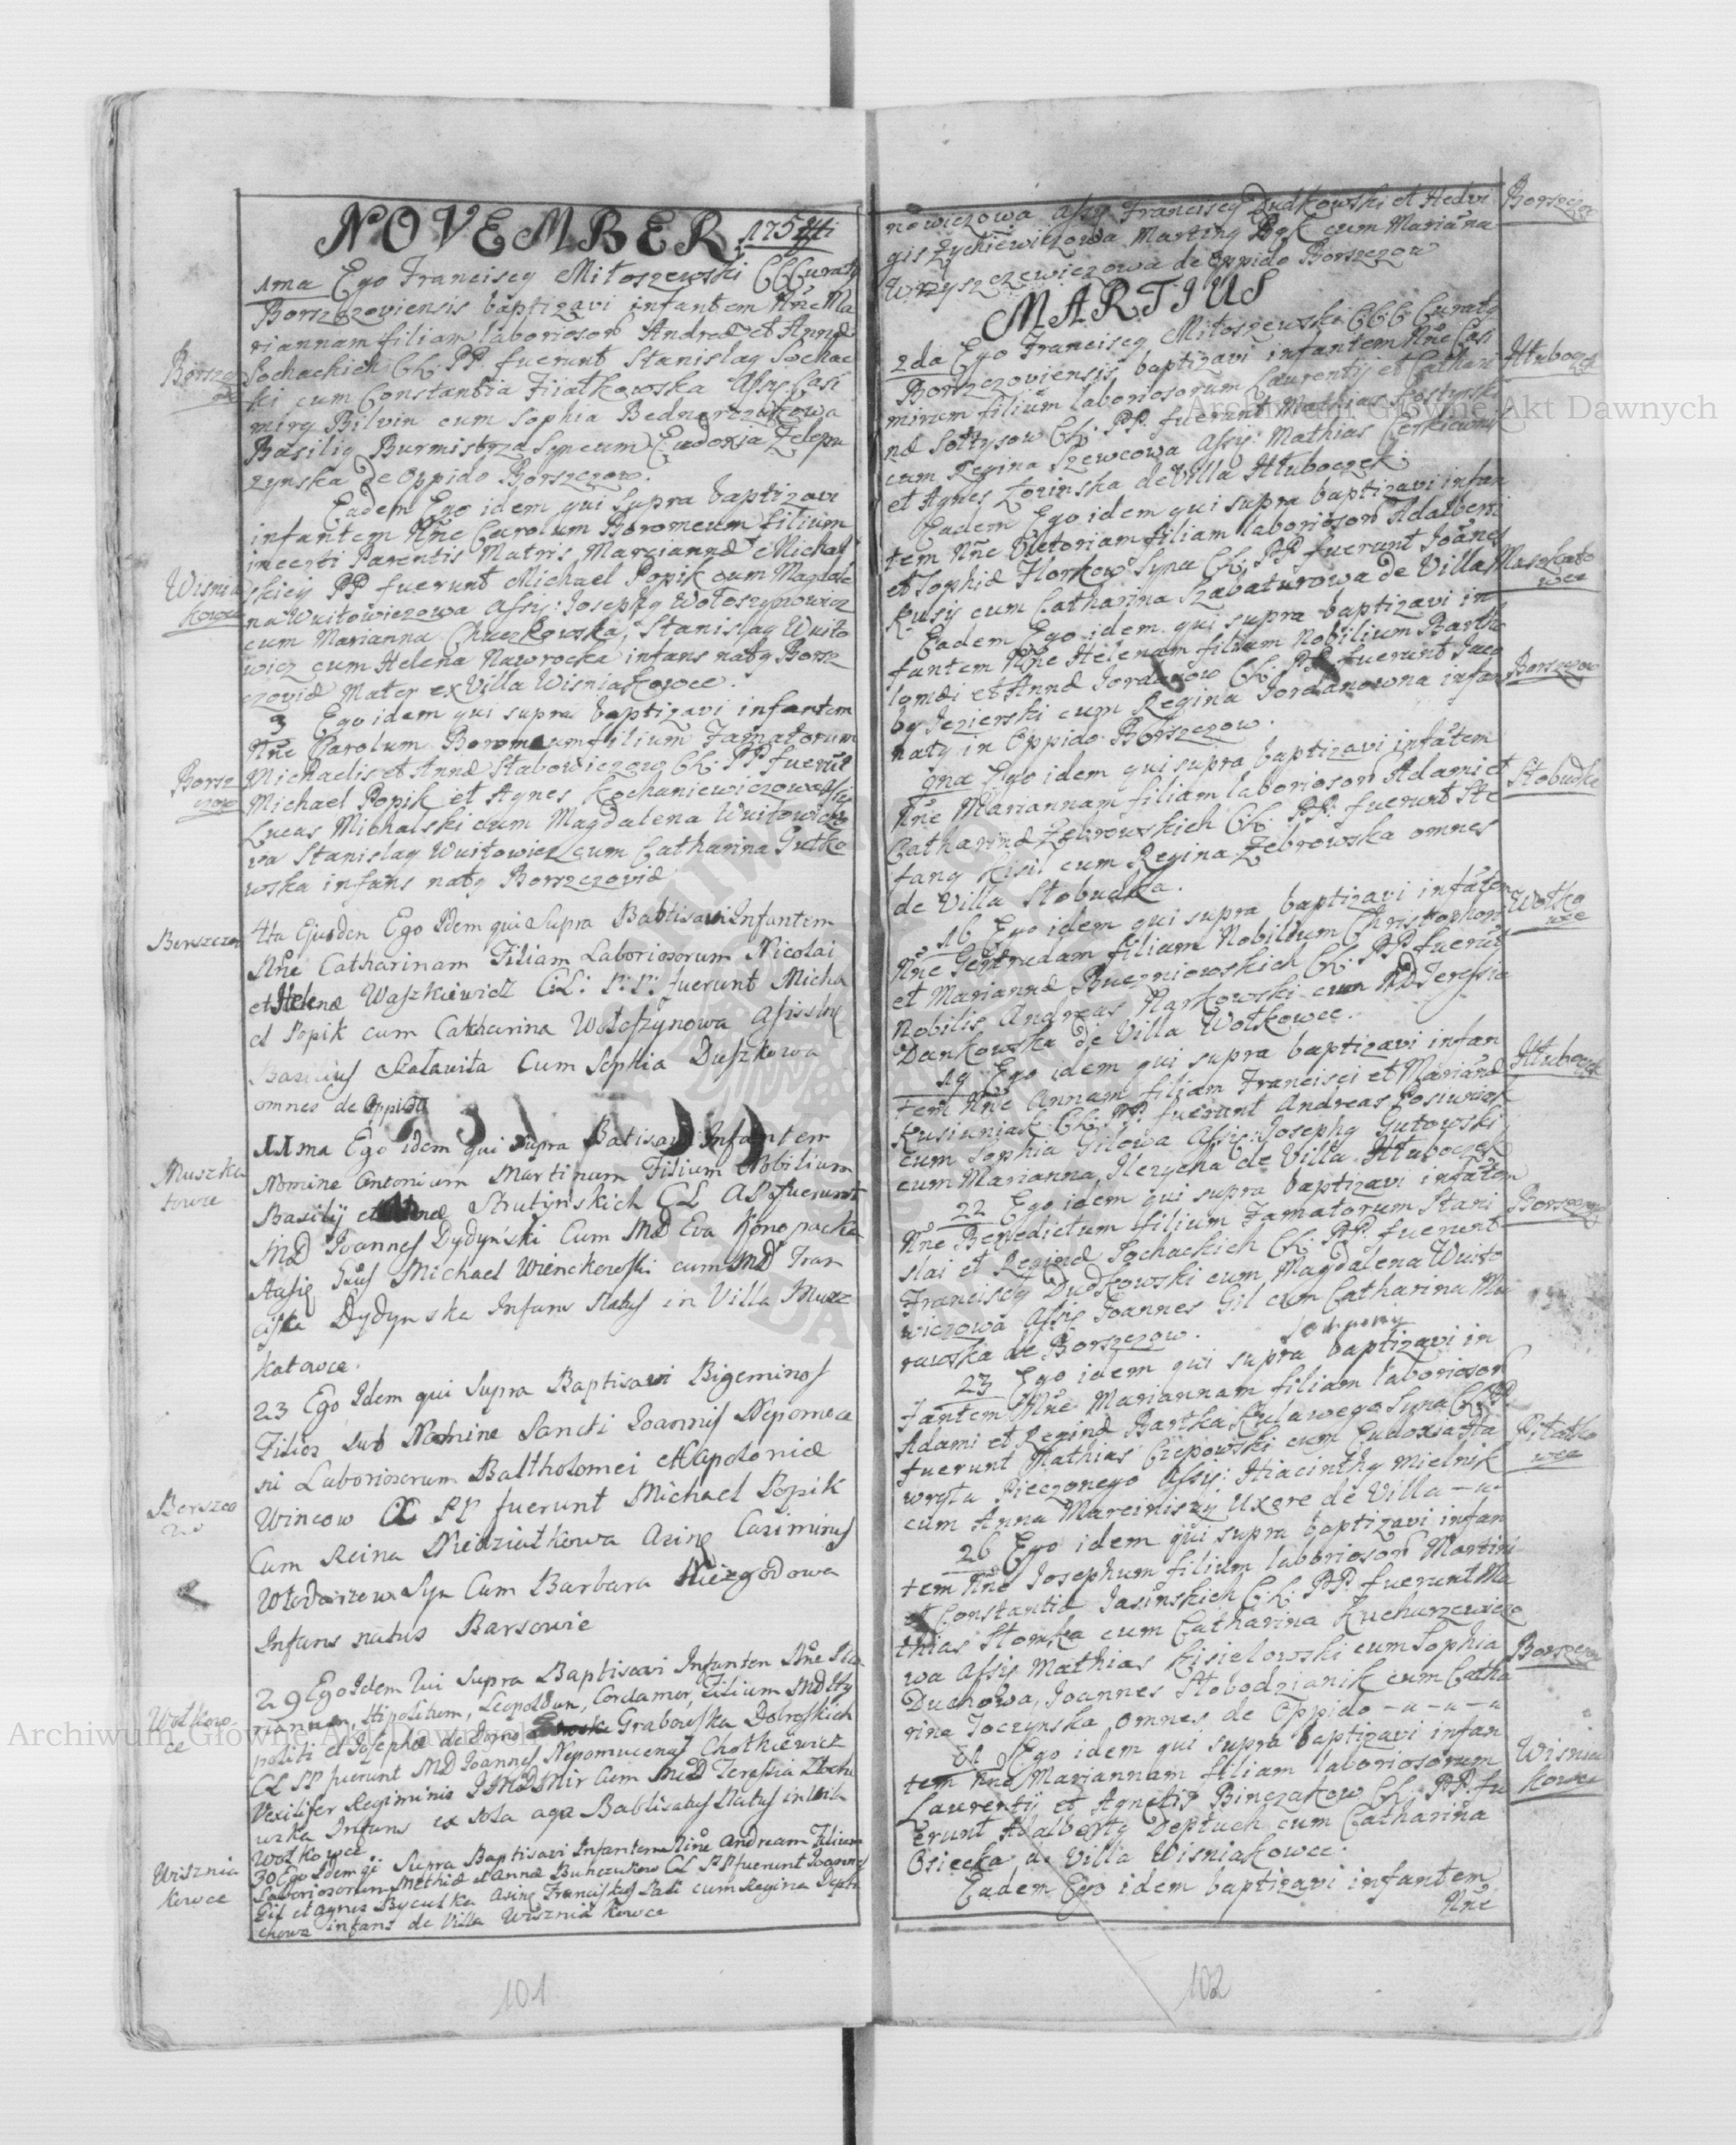 NOVEMBER 1754ti
1ma Ego Franciscq Miłoszewski CCCuratq
Borszczoviensis baptizavi infantem Nñe Ma
riannam filiam laboriosor Andreæ et Annæ
Sochackich CL. PP. fuerunt Stanislaq Sochac
ki cum Constantia Fiiałkowska Assys Casi
mirq Bilvin cum Sophia Bednarczukowa
Basiliq Burmistrza Syn cum Eudoxia Zelepu
zynska de Oppido Borszczow.
Borszczo
Eadem Ego idem qui supra baptizavi
infantem Nñe Carolum Boromeum filium
incerti Parentis Matris Mariannæ Michal
skiey PP fuerunt Michael Popik cum Magdale
na Wuitowiczowa Assys: Josephq Wołoszynowicz
cum Marianna Chuczkowska, Stanislaq Wuito
wicz cum Helena Nawrocka infans natq Borsz
czoviæ Mater ex Villa Wisniakowce.
Wisnia
kowce
3 Ego idem qui supra baptizavi infantem
Nñe Carolum Boromeum filium Famatorum
Michaelis et Annæ Słabowiczow CL. PP fuerut
Michael Popik et Agnes Kochaniewiczowa Assys
Lucas Michalski cum Magdalena Wuitowiczo
wa Stanislaq Wuitowicz cum Catharina Gutko
wska infans natq Borszczoviæ
Borsz
czow
4ta Ejusden Ego Idem qui Supra Babtisavi Infantem
Nñe Catharinam Filiam Laboriosorum Nicolai
et Helenæ Waszkiewicz CL: P: P: fuerunt Micha
el Popik cum Catcharina Wołoszynowa Asisstng
Basilius Szaławita Cum Sophia Duszkowa
omnes de Oppido
Borszczow
11ma Ego idem qui supra Batisavi Infantem
Nomine Antonium Martinum Filium Nobilium
Basilij et Strutynskich CL PP fuerunt
MD Joannes Dydyński Cum MD Eva Konopacka
Michael Wienckowski cum MD Fran
ciska Dydynska Infans Natus in Villa Musz
katowce.
Muszka
towce
23 Ego Idem qui Supra Baptisavi Bigeminos
Filios sub Nomine Sancti Joannis Nepomoce
ni Laboriosorum Baltholomei et Apoloniæ
Wincow CL PP fuerunt Michael Popik
Cum Reina Niedziałkowa Asing Casimirus
Włodarzow Syn Cum Barbara Niezgodowa
Infans natus Barsowie
Borszczo
29 Ego Idem Qui Supra Baptisavi Infanten Nñe
riannum, Hipolitum, Leopoldum, Cordamer, Filium MD Hy
politi et Josephæ de Grabowska Dobrskich
CL PP fuerunt MD Joannes Nepomucenus Chotkiewicz
Vexilifer Regiminis Cum MD Teressia
wska Infans ex sola aqa Babtisatus Natus in Villa
Wołkowce
Wołkow
ce
30 Ego Idem qi Supra Baptisavi Infantem Nñe Andream Filium
Laboriosorum Mathiæ et Annæ Bunczukow CL PP fuerunt Joannes
Gil et Agnes Byculka Asing Franciskus Pali cum Regina Deptu
chowa infans de Villa Wisznia kowce
Wisznia
kowce
101
nowiczowa Assy Franciscq Dudkowski et Hedvi
gis Zychiewiczowa Martinq Bąk cum Marianna
Wrzyszczewiczowa de Oppido Borszczow
Borszczow
MARTIUS
2da Ego Franciscq Miłoszewski CCC Curatq
Borszczoviensis baptizavi infantem Nñe Casi
mirum filium laboriosorum Laurentij et Cathari
næ Sołtysow CL: PP. fuerunt Mathias Kostynski
cum Regina Szewcowa Assy: Mathias
et Agnes Zozinska de Villa Hłuboczek
Hłuboczek
Eadem Ego idem qui supra baptizavi infan
tem Nñe Victoriam filiam laboriosor Adalberti
et Sophiæ Florkow Syna CL PP fuerunt Joannes
Kusy cum Catharina Szabaturowa de Villa
Muszkato
wce
Eadem Ego idem qui supra baptizavi in
fantem Nñe Helenam filiam nobilium Bartho
lomæi et Annæ Jordanow CL PP fuerunt Jaco
bq Jezierski cum Regina Jordanowna infan
natq in Oppido Borszczow.
Borszczow
9na Ego idem qui supra baptizavi infãtem
Nñe Mariannam filiam laboriosor Adami et
Catharinæ Zebrowskich CL. PP. fuerunt Ste
fanq Kisil cum Regina Zebrowska omnes
de Villa Słobudka.
Słobudka
16 Ego idem qui supra baptizavi infãtem
Nñe Gertrudam filiam Nobilium Christophori
et Mariannæ Buczniowskich CL PP fuerut
Nobilis Andreas Markowski cum MD Teressia
Dankowska de Villa Wołkowce.
Wołko
wce
19 Ego idem qui supra baptizavi infan
tem Nñe Annam filiam Francisci et Mariannæ
Kusiuniak CL: PP. fuerunt Andreas Łosiuniak
cum Sophia Gilowa Assy: Josephq Gutowski
cum Marianna Ilczycha de Villa Hłuboczek
Hłuboczek
22 Ego idem qui supra baptizavi infãtem
Nñe Benedictum filium Famatorum Stani
slai et Reginæ Sochackich CL: PP. fuerunt
Franciscq Dudkowski cum Magdalena Wuito
wiczowa Assys Joannes Gil cum Catharina Mu
rawska de Borszczow.
Borszczow
23 Ego idem qui supra baptizavi in
fantem Nñe Mariannam filiam laboriosor
Adami et Reginæ Bartka Kulawego Syna CL PP
fuerunt Mathias Czepowski cum Eudoxia Ha
wryła Pieczonego Assy: Hiacinthq Mielnik
cum Anna Marciniszy Uxore de Villa
Piłatko
wce
26 Ego idem qui supra baptizavi infan
tem Nñe Josephum filium laboriosor Martini
et Constantiæ Jasinskich CL. PP. fuerunt Ma
thias Słomka cum Catharina Kucharzewiczo
wa Assys Mathias Kisielowski cum Sophia
Duchowa, Joannes Słobodzianik cum Catha
rina Joczynska omnes de Oppido
Borszczow
Ego idem qui supra baptizavi infan
tem Nñe Mariannam filiam laboriosorum
Laurentij et Agnetis Binczakow CL. PP. fu
erunt Adalbertq Deptuch cum Catharina
Osiecka de Villa Wisniakowce.
Wisnia
kowce
Eadem Ego idem baptizavi infantem
Nñe
102
Archiwum Główne Akt Dawnych
Archiwum Główne Akt Dawnych